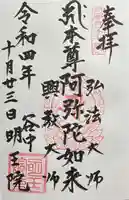 奉拝
弘法大師
本尊阿弥陀如来
興教大師
谷中
明王院
令和四年
十月廿三日